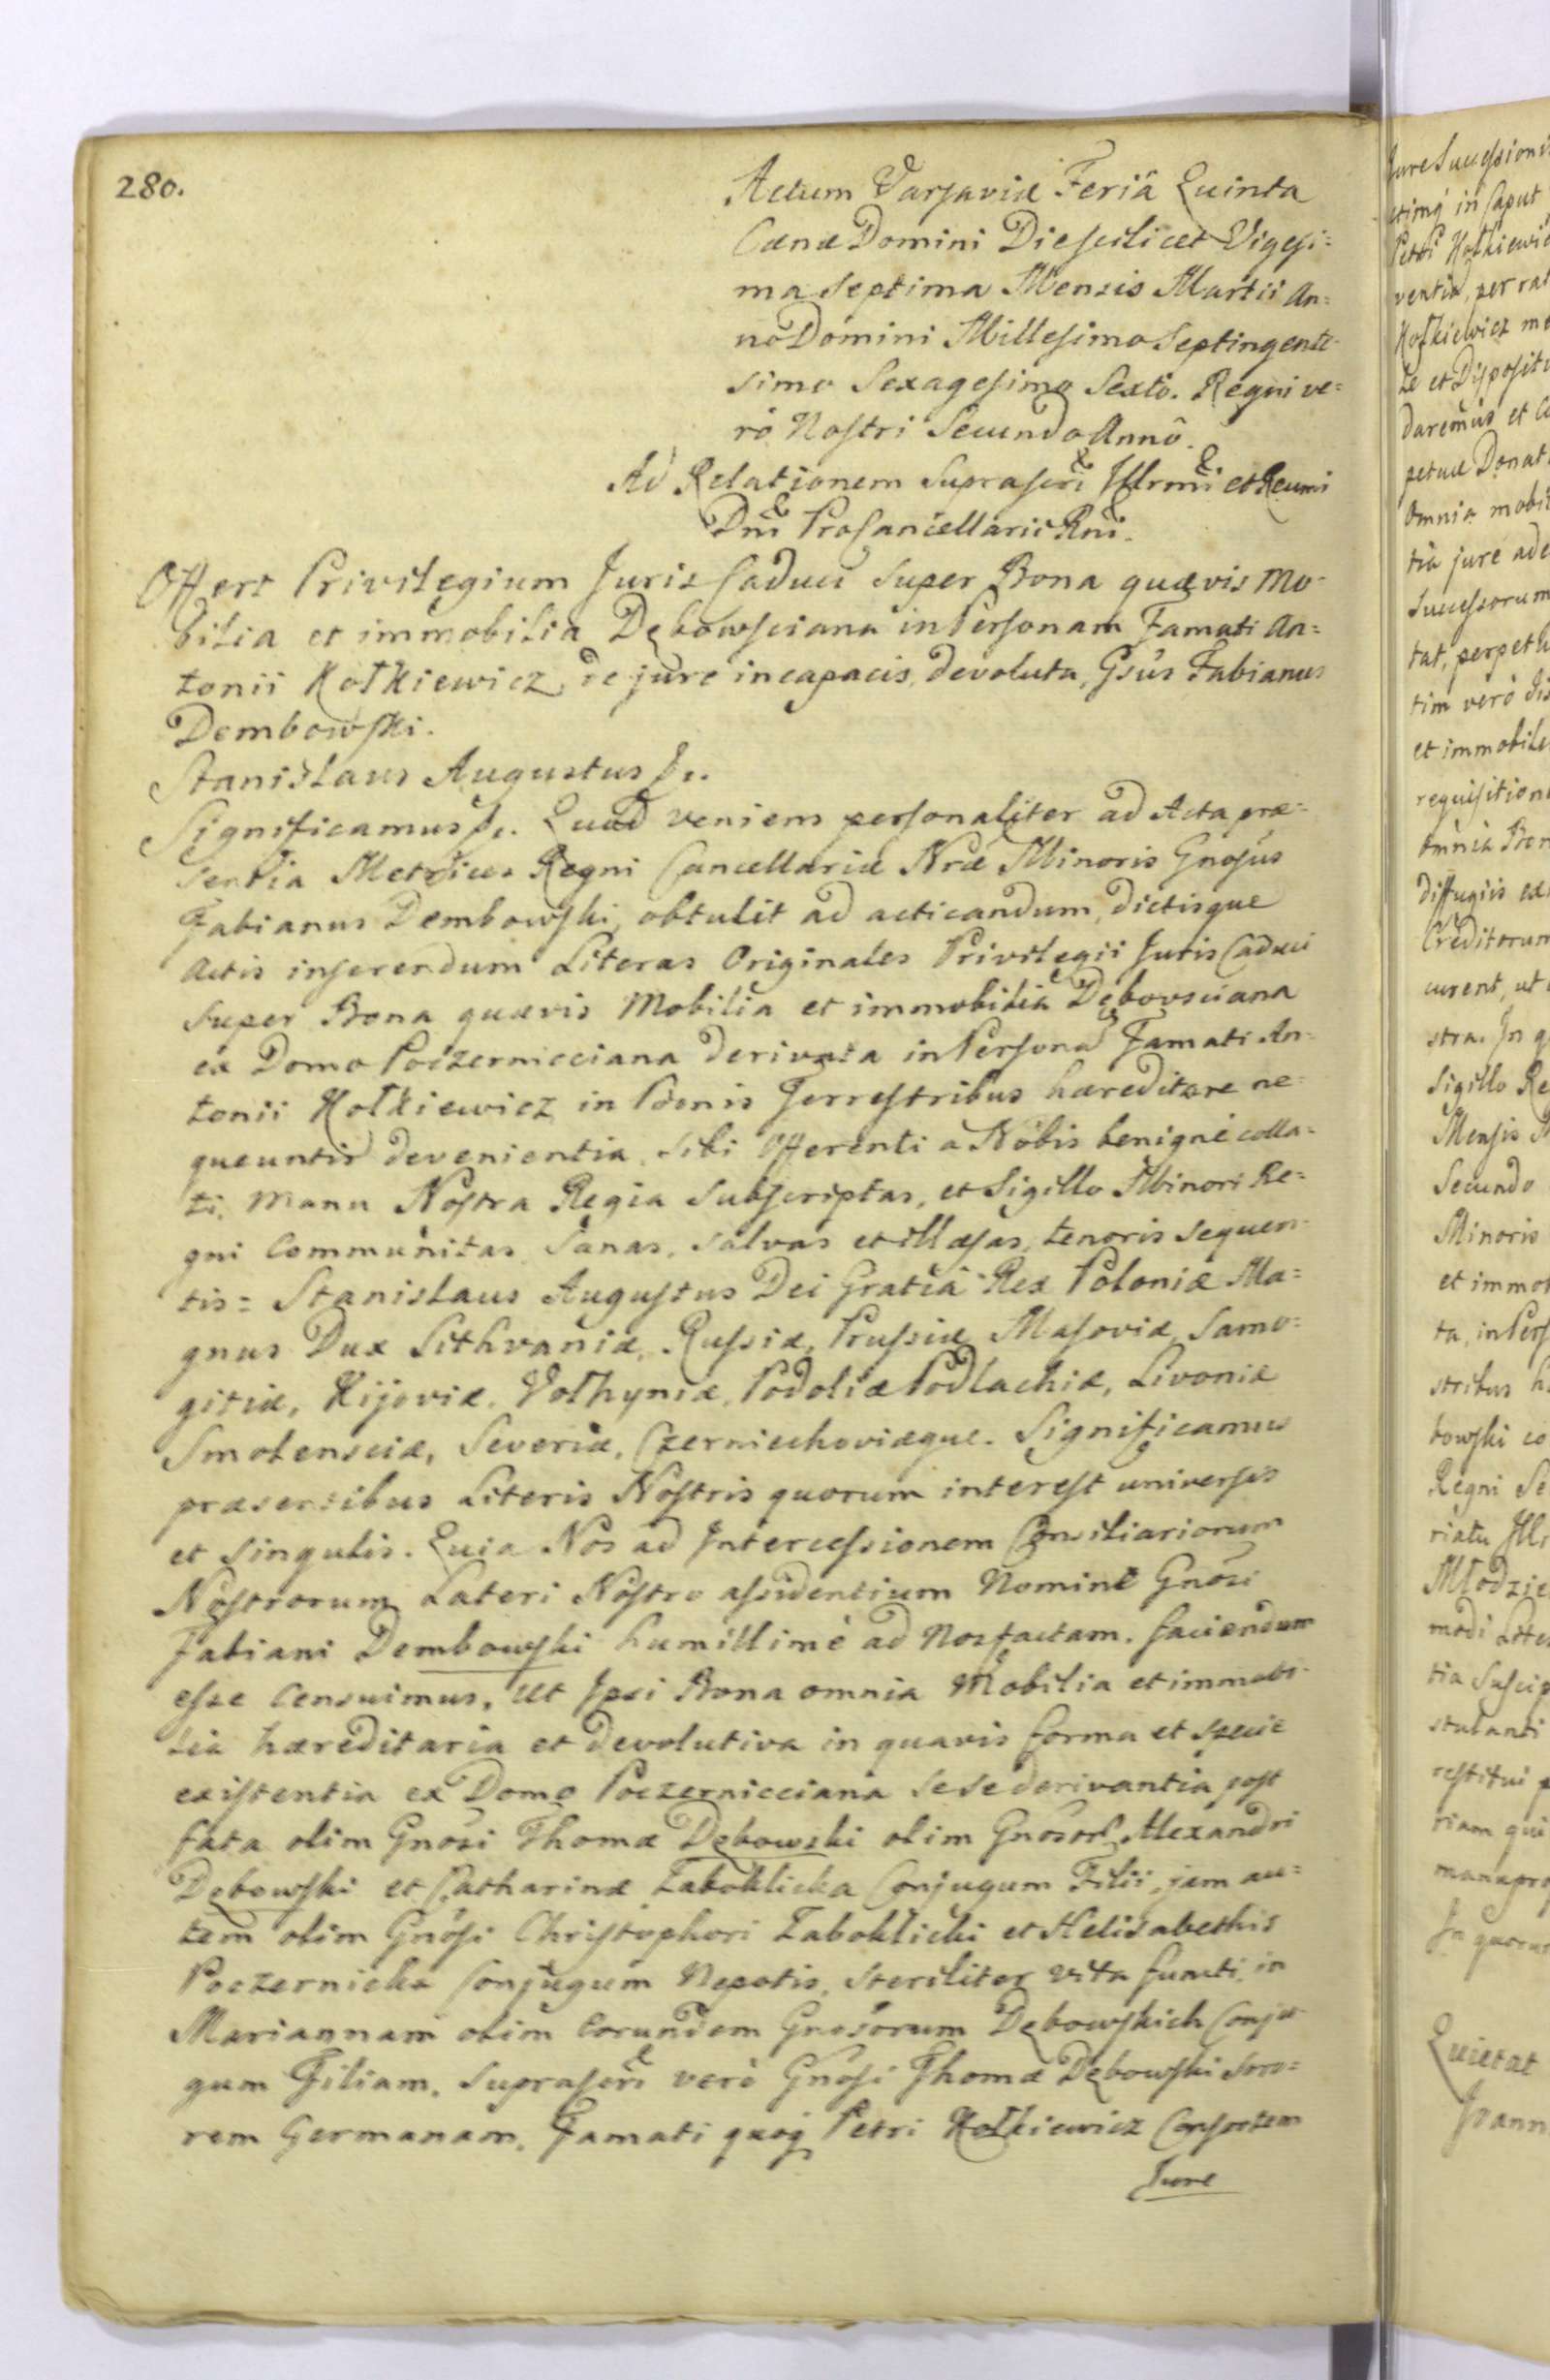 280.
Actum Varsaviæ Feriâ Quinta
Cænæ Domini Die scilicet Vigesi=
ma septima Mensis Martii An=
no Domini Millesimo Septingente-
simo Sexagesimo Sexto. Regni ve=
rò Nostri Secundo Annô.
Ad Relationem suprascri Illrmi et Reumi
Dni ProCancellarii Rni.
Offert Privilegium Juris Caduci super Bona quævis Mo-
bilia et immobilia Dębowsciana in Personam Famati An=
tonii Kołkiewicz de jure incapacis devoluta, Gsus Fabianus
Dembowski.
Stanislaus Augustus &.
Significamus &. Quod veniens personaliter ad Acta præ=
sentia Metrices Regni Cancellariæ Nræ Minoris Gnosus
Fabianus Dembowski, obtulit ad acticandum, dictisque
Actis inserendum Literas Originales Privilegii Juris Caduci
super Bona quævis Mobilia et immobilia Dębovsciana
ex Domo Poczernicciana derivata in Persona Famati An-
tonii Kołkiewicz in Bonis Terrestribus hæreditare ne=
queuntis devenientia, sibi Offerenti a Nobis benignè colla=
ti, Manu Nostra Regia subscriptas, et Sigillo Minori Re=
gni Communitas Sanas, salvas et illæsas, tenoris sequen-
tis= Stanislaus Augustus Dei Gratiâ Rex Poloniæ Ma=
gnus Dux Lithvaniæ, Russiæ, Prussiæ Masoviæ, Samo=
gitiæ, Kijoviæ, Volhyniæ, Podoliæ Podlachiæ, Livoniæ
Smolensciæ, Severiæ, Czerniechoviæque. Significamus
præsentibus Literis Nostris quorum interest universis
et singulis. Quia Nos ad Intercessionem Consiliariorum
Nostrorum Lateri Nostro assidentium Nomine Gnosi
Fabiani Dembowski humillimè ad Nos factam. faciendum
esse Censuimus, Ut Ipsi Bona omnia Mobilia et immobi-
lia hæreditaria et devolutiva in quavis forma et specie
existentia ex Domo Poczernicciana sese derivantia post
fata olim Gnosi Thomæ Dębowski olim Gnosor Alexandri
Dębowski et Catharinæ Zaboklicka Conjugum Filii, jam au=
tem olim Gnosi Christophori Zaboklicki et Helisabethis
Poczernicka Conjugum Nepotis, steriliter vita functi, in
Mariannam olim eorundem Gnosorum Dębowskich Conju-
gum Filiam. Suprascri verò Gnosi Thomæ Dębowski soro=
rem Germanam, Famati quoq Petri Kołkiewicz Consortem
Jure
Jure Successionis
in Caput
Petri Kołkiewic
ventia, per rat
Kołkiewicz
te et Disposit
daremus et
petuæ Donat
Omnia mobi
tia jure ade
Successorum
tat, perpet
tim verò dis
et immobile
requisition
omnia Bon
diffugiis ex
Creditorum
curent, ut
stra. In q
Sigillo Re
Mensis M
Secundo
Minoris
et immo
ta, in Pers
stribus h
bowski co
Regni Se
riatu Illr
Młodzie
modi Lite
tia Suscip
stulanti
restitui p
riam qui
manu pro
In quoru
Quietat
Joann